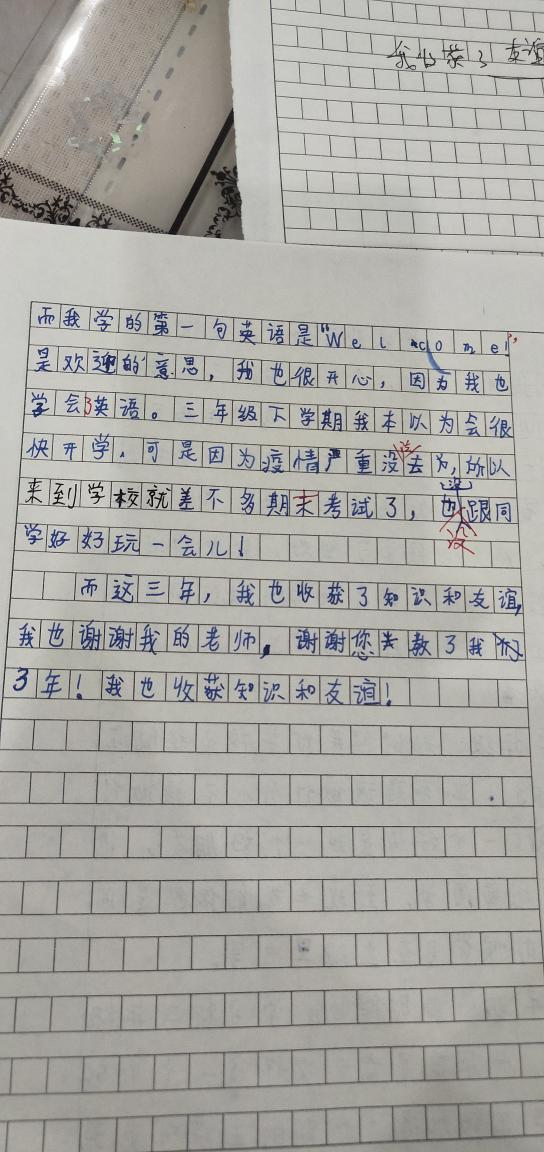 我收获了友谊
而我学的第一句英语是"Welcome!"
是欢迎的意思，我也很开心，因为我也
学会了英语。三年级下学期我本以为会很
快开学，可是因为疫情严重没去为，所以
来到学校就差不多期末考试了，也没跟同
学好好玩一会儿！
而这三年，我也收获了知识和友谊，
我也谢谢我的老师，谢谢您教了我
3年！我也收获知识和友谊！